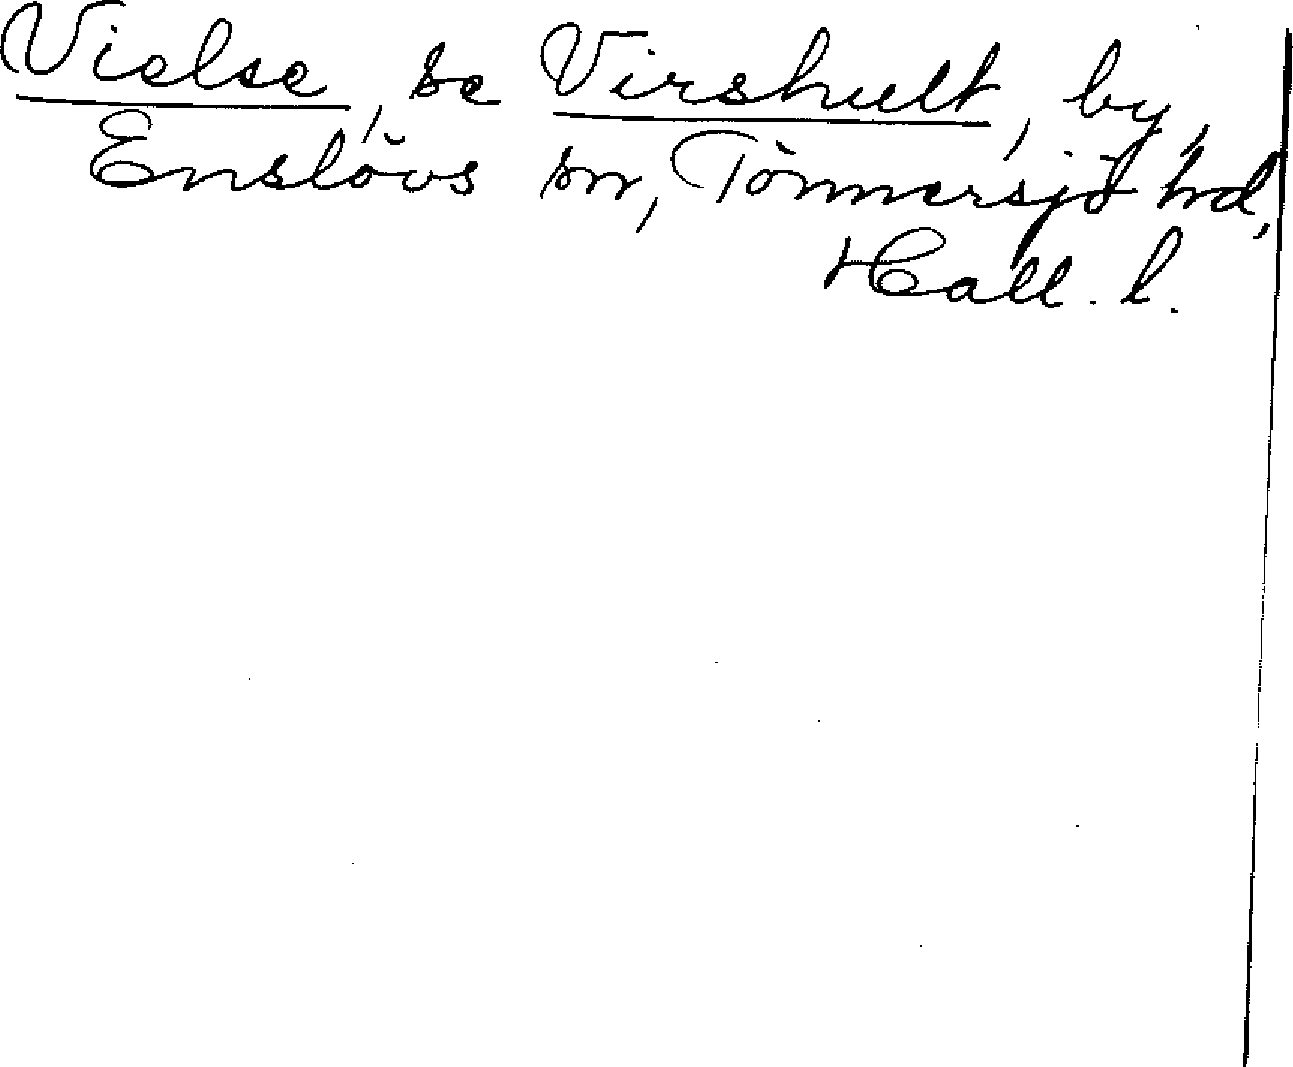 Vielse, se Virshult, by,
Enslövs sn, Tönnersjö hd,
Hall. l.